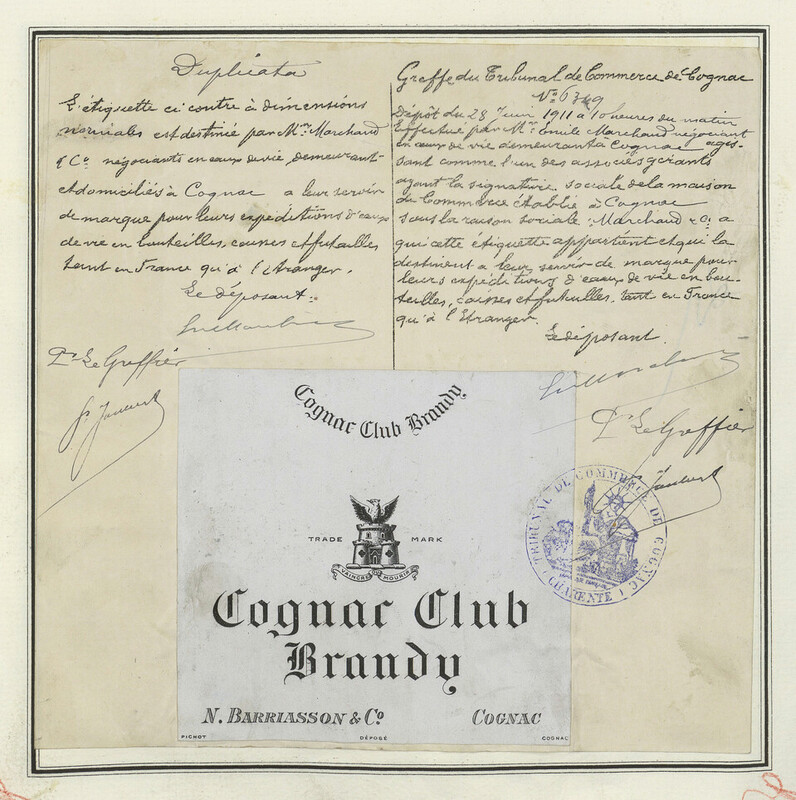 Duplicata
L'étiquette ci contre à dimensions
normales est destinée par Mm. Marchand
& Co négociants en eaux de vie, demeurant
et domiciliés à Cognac a leur servir
de marque pour leurs expéditions d'eaux
de vie en bouteilles, caisses et futailles
tant en France qu'à l'étranger.
Le déposant:
Pr. Le Greffier
Greffe du Tribunal de Commerce de Cognac
No 6349
Dépôt du 28 Juin 1911 à 10 heures du matin
Effectué par Mr. Emile Marchand négociant
en eaux de vie demeurant à Cognac agis-
sant comme l'un des associés gérants
ayant la signature sociale de la maison
de Commerce établie à Cognac
sous la raison sociale: Marchand & Co a
qui cette étiquette appartient et qui la
destinent a leur servir de marque pour
leurs expéditions d'eaux de vie en bou-
teilles, caisses et futailles, tant en France
qu'à l'Etranger.
Le déposant.
Pr. Le Greffier
TRIBUNAL DE COMMERCE DE COGNAC
CHARENTE
Cognac Club Brandy
TRADE MARK
VAINCRE OU MOURIR
Cognac Club
Brandy
N. BARRIASSON & Co COGNAC
PICHOT DÉPOSÉ COGNAC